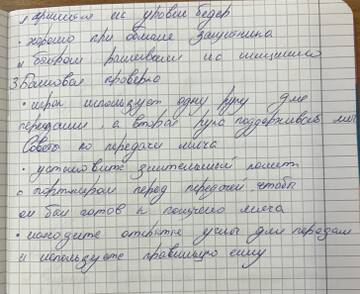 и прыжком из уровня бедер
• хорошо при обмане защитника
и быстром
3. Боковая проверка
• игрок использует одну руку для
передачи, а вторая рука поддерживает мяч
Советы по передаче мяча
• установить зрительный контакт
с партнером перед передачей чтобы
он был готов к получению мяча
• находите открытые углы для передачи
и используйте правильную силу